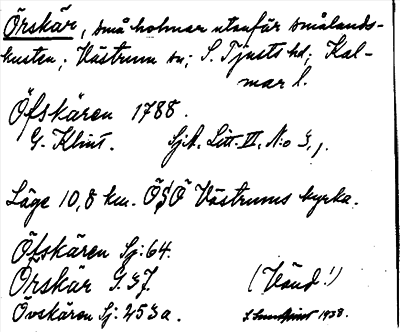 Örskär, små holmar utanför smålands-
kusten; Västrum sn; S. Tjusts hd; Kal-
mar l.
Öfskären 1788.
G. Klint. Sjk. Litt. II. N:o 3,,.
Läge 10,8 km. ÖSÖ Västrums kyrka.
Öfskären Sj:64.
Örskär G.37. (Vänd!)
Övskären Sj:253a. 1938.